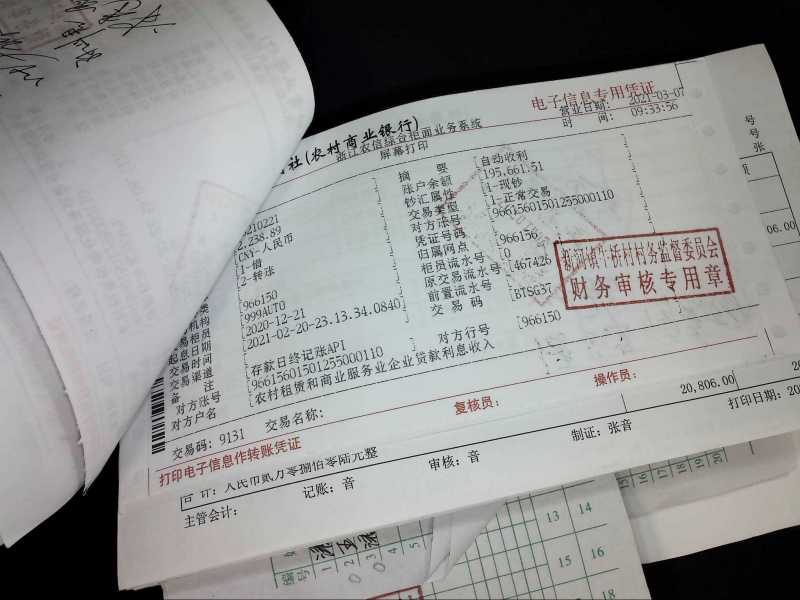 电子信息专用凭证
社(农村商业银行)
浙江农信综合柜面业务系统
屏幕打印
营业日期: 2021-03-07
时 间: 09:33:56
摘 要 [自动收利
账户余额 [195,661.51
钞汇属性 [1-现钞
交易类型 [1-正常交易
对方账号 [96615601501255000110
凭证号码
归属网点 [966156
柜员流水号 [0
原交易流水号 [467426
前置流水号
交 易 码 [BTSG37
0210221
2,238.89
CNY-人民币
1-借
2-转账
[966150
机构 [999AUTO
易柜员
起息日期 [2020-12-21
交易时间 [2021-02-20-23.13.34.0840]
交易渠道
备 注 [存款日终记账API
对方账号 [96615601501255000110
对方行号 [966150
对方户名 [农村租赁和商业服务业企业贷款利息收入
交易码: 9131 交易名称:
复核员: 操作员:
打印电子信息作转账凭证
合 计: 人民币贰万零捌佰零陆元整 20,806.00
主管会计: 记账: 音 审核: 音 制证: 张音 打印日期: 20
村务监督委员会
财务审核专用章
号
号
张
06.00
编号
1
2
3
4
5
13
14
15
16
18
15
16
17
18
19
20